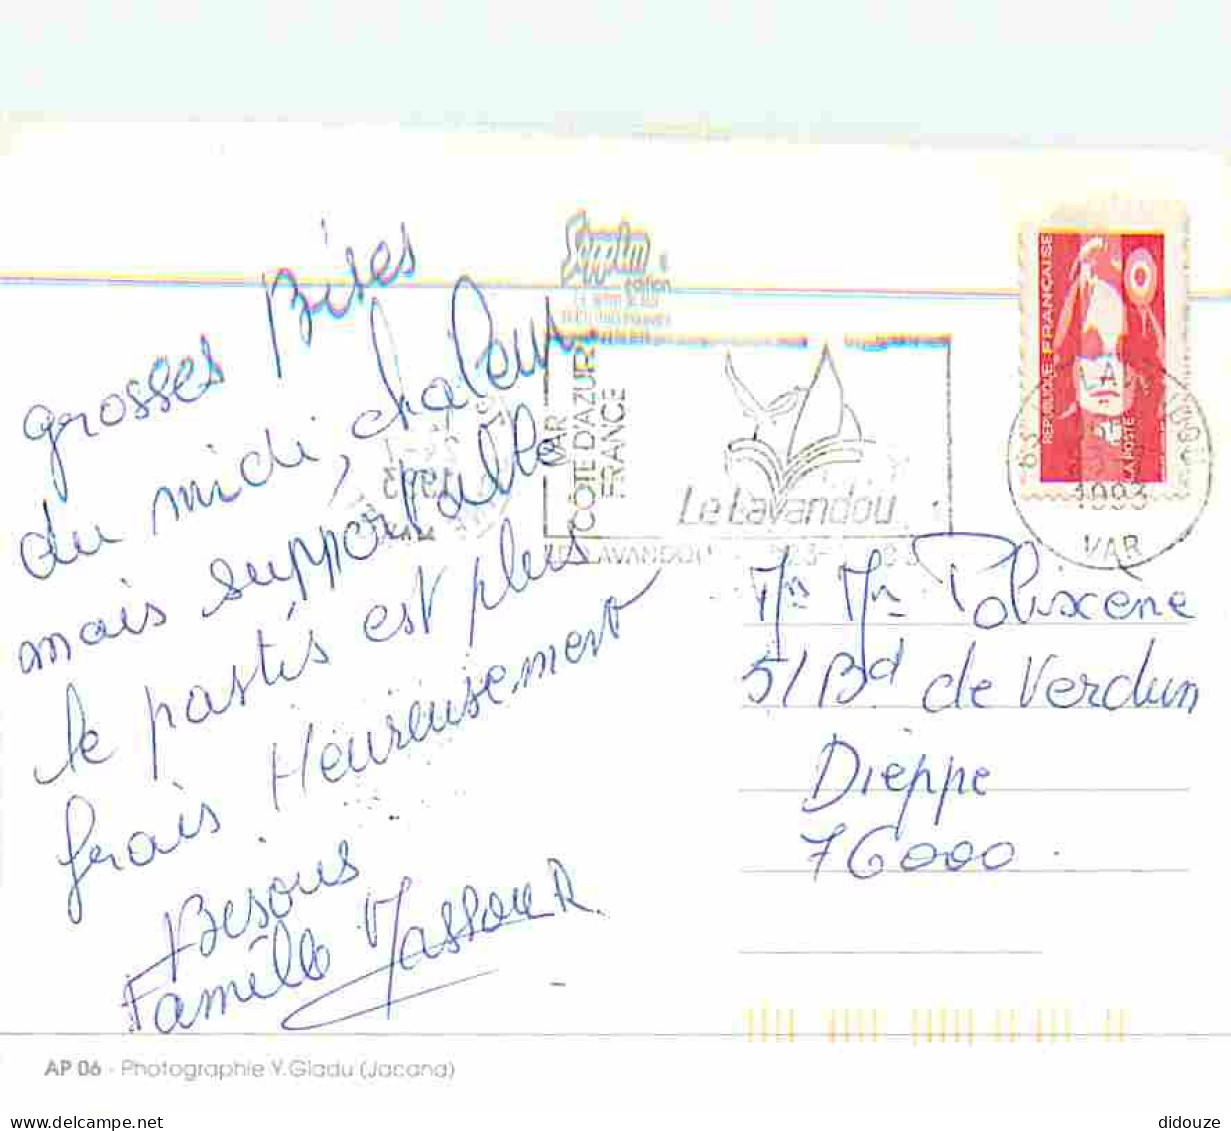 grosses Bises
du midi, chaleur
mais supportable
le pastis est plus
frais Heureusement
Bisous
Famille Massour
Sepplun
édition
VAR
CÔTE D'AZUR
FRANCE
Le Lavandou
LE LAVANDOU
RÉPUBLIQUE FRANÇAISE
LA POSTE
1993
VAR
Mr Mr Polixene
51 Bd de Verdun
Dieppe
76000
AP 06 - Photographie Y.Gladu (Jacana)
delcampe.net
didouze